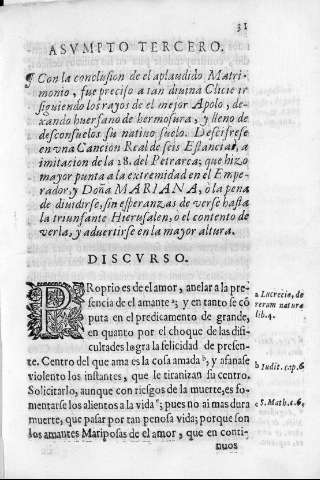 31
ASVMPTO TERCERO.
¶ Con la conclusion de el aplaudido Matri-
monio, fue preciso a tan diuina Clicie ir
siguiendo los rayos de el mejor Apolo, de-
xando huerfano de hermosura, y lleno de
desconsuelos su natiuo suelo. Descifrese
en vna Cancion Real de seis Estancias, a
imitacion de la 28. del Petrarca; que hizo
mayor punta a la extremidad en el Empe-
rador, y Doña MARIANA, ò la pena
de diuidirse, sin esperanzas de verse hasta
la triunfante Hierusalen, ò el contento de
verla, y aduertirse en la mayor altura.
DISCVRSO.
PRoprio es de el amor, anelar a la pre-
sencia de el amante a; y en tanto se cō
puta en el predicamento de grande,
en quanto por el choque de las difi-
cultades logra la felicidad de presen-
te. Centro del que ama es la cosa amada b, y afanase
violento los instantes, que le tiranizan su centro.
Solicitarlo, aunque con riesgos de la muerte, es fo-
mentarse los alientos a la vida c; pues no ai mas dura
muerte, que pasar por tan penosa vida; porque son
los amantes Mariposas de el amor, que en conti-
nuos
a Lucrecio, de
rerum natura
lib. 4.
b Iudit. cap. 6.
c S. Math. c. 6.